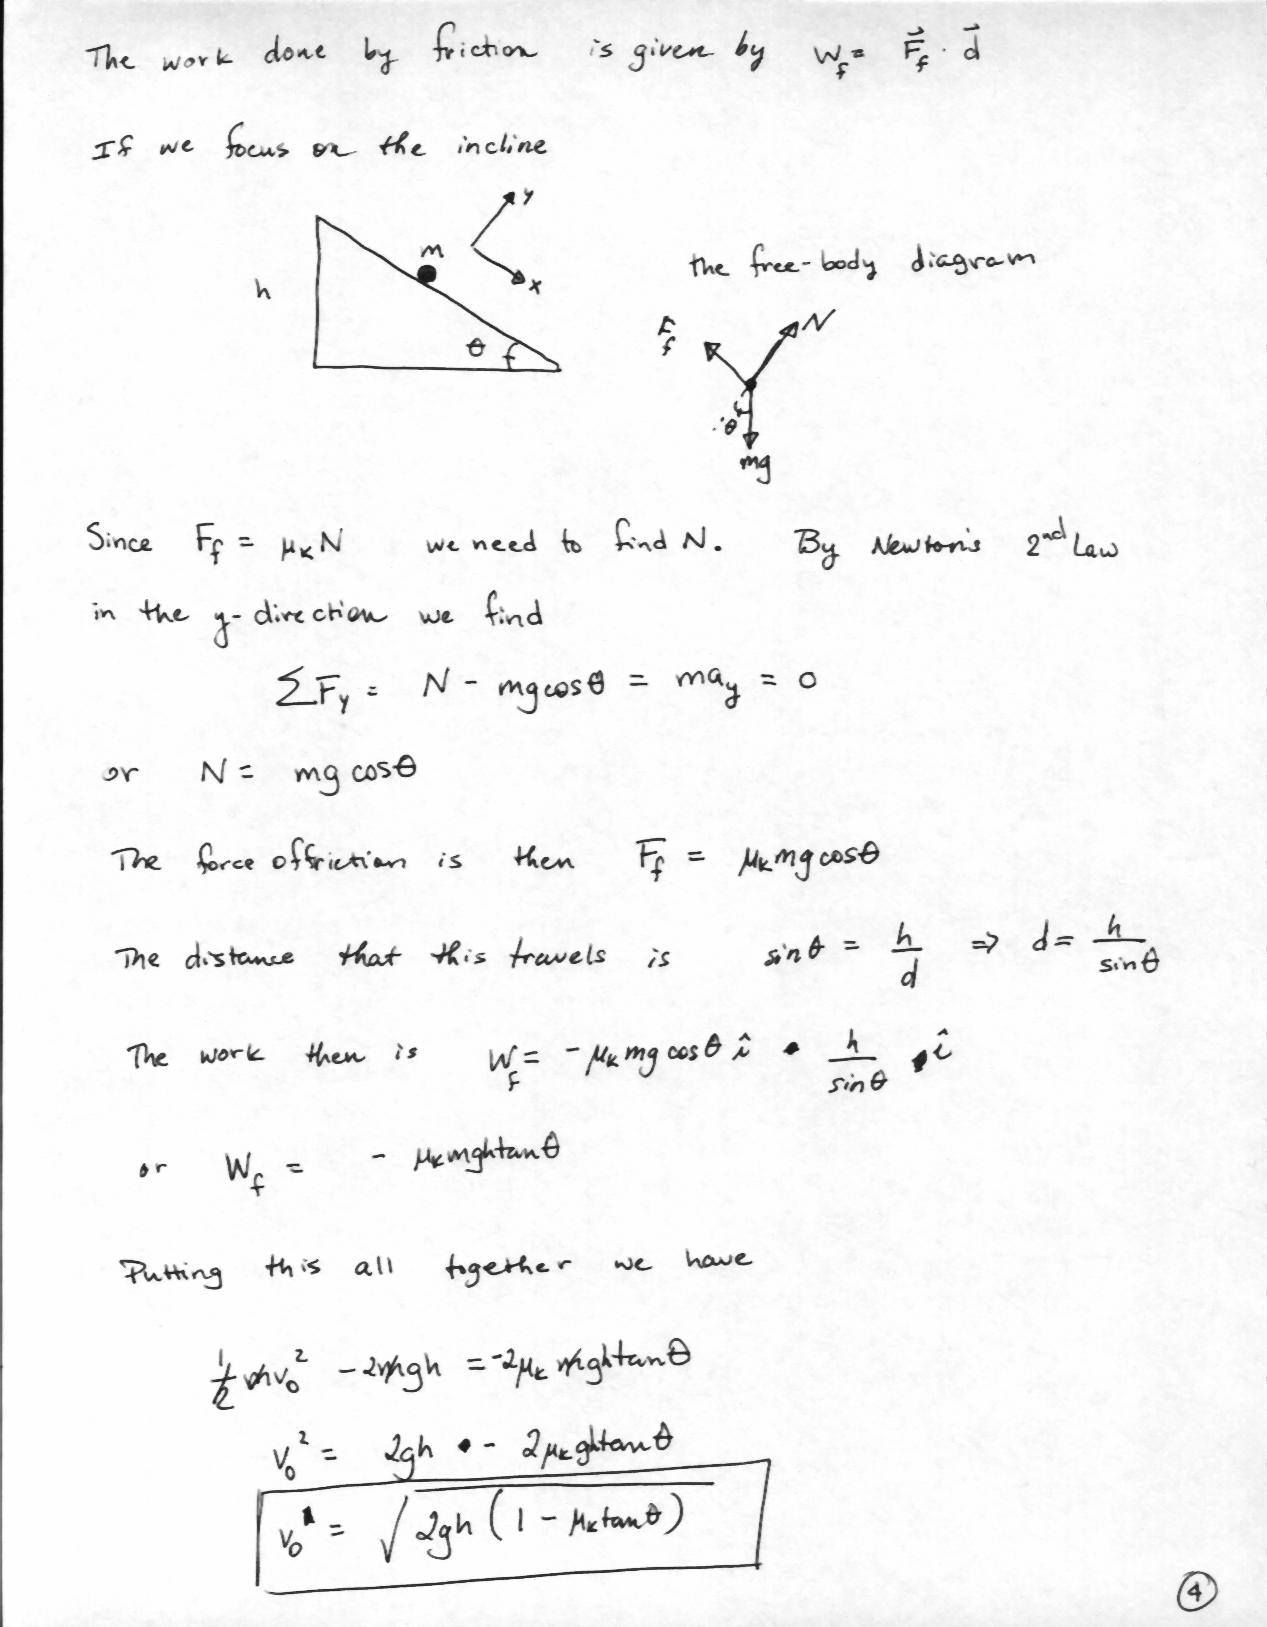 The work done by friction is given by W_f = F⃗_f · d⃗
If we focus on the incline
y
m
x
h
θ
the free-body diagram
F_f
N
θ
mg
Since F_f = μ_k N we need to find N. By Newton's 2nd Law
in the y-direction we find
ΣF_y = N - mg cosθ = ma_y = 0
or N = mg cosθ
The force of friction is then F_f = μ_k mg cosθ
The distance that this travels is sinθ = h/d ⇒ d = h/sinθ
The work then is W_f = - μ_k mg cosθ î • h/sinθ î
or W_f = - μ_k mgh tanθ
Putting this all together we have
1/2 mv₀² - 2mgh = -2μ_k mgh tanθ
v₀² = 2gh - 2μ_k gh tanθ
v₀ = √(2gh (1 - μ_k tanθ))
4